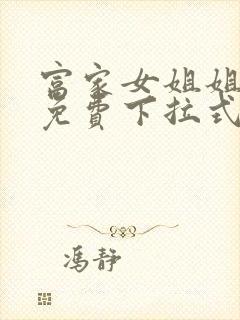 富家女姐姐
免费下拉式
冯静